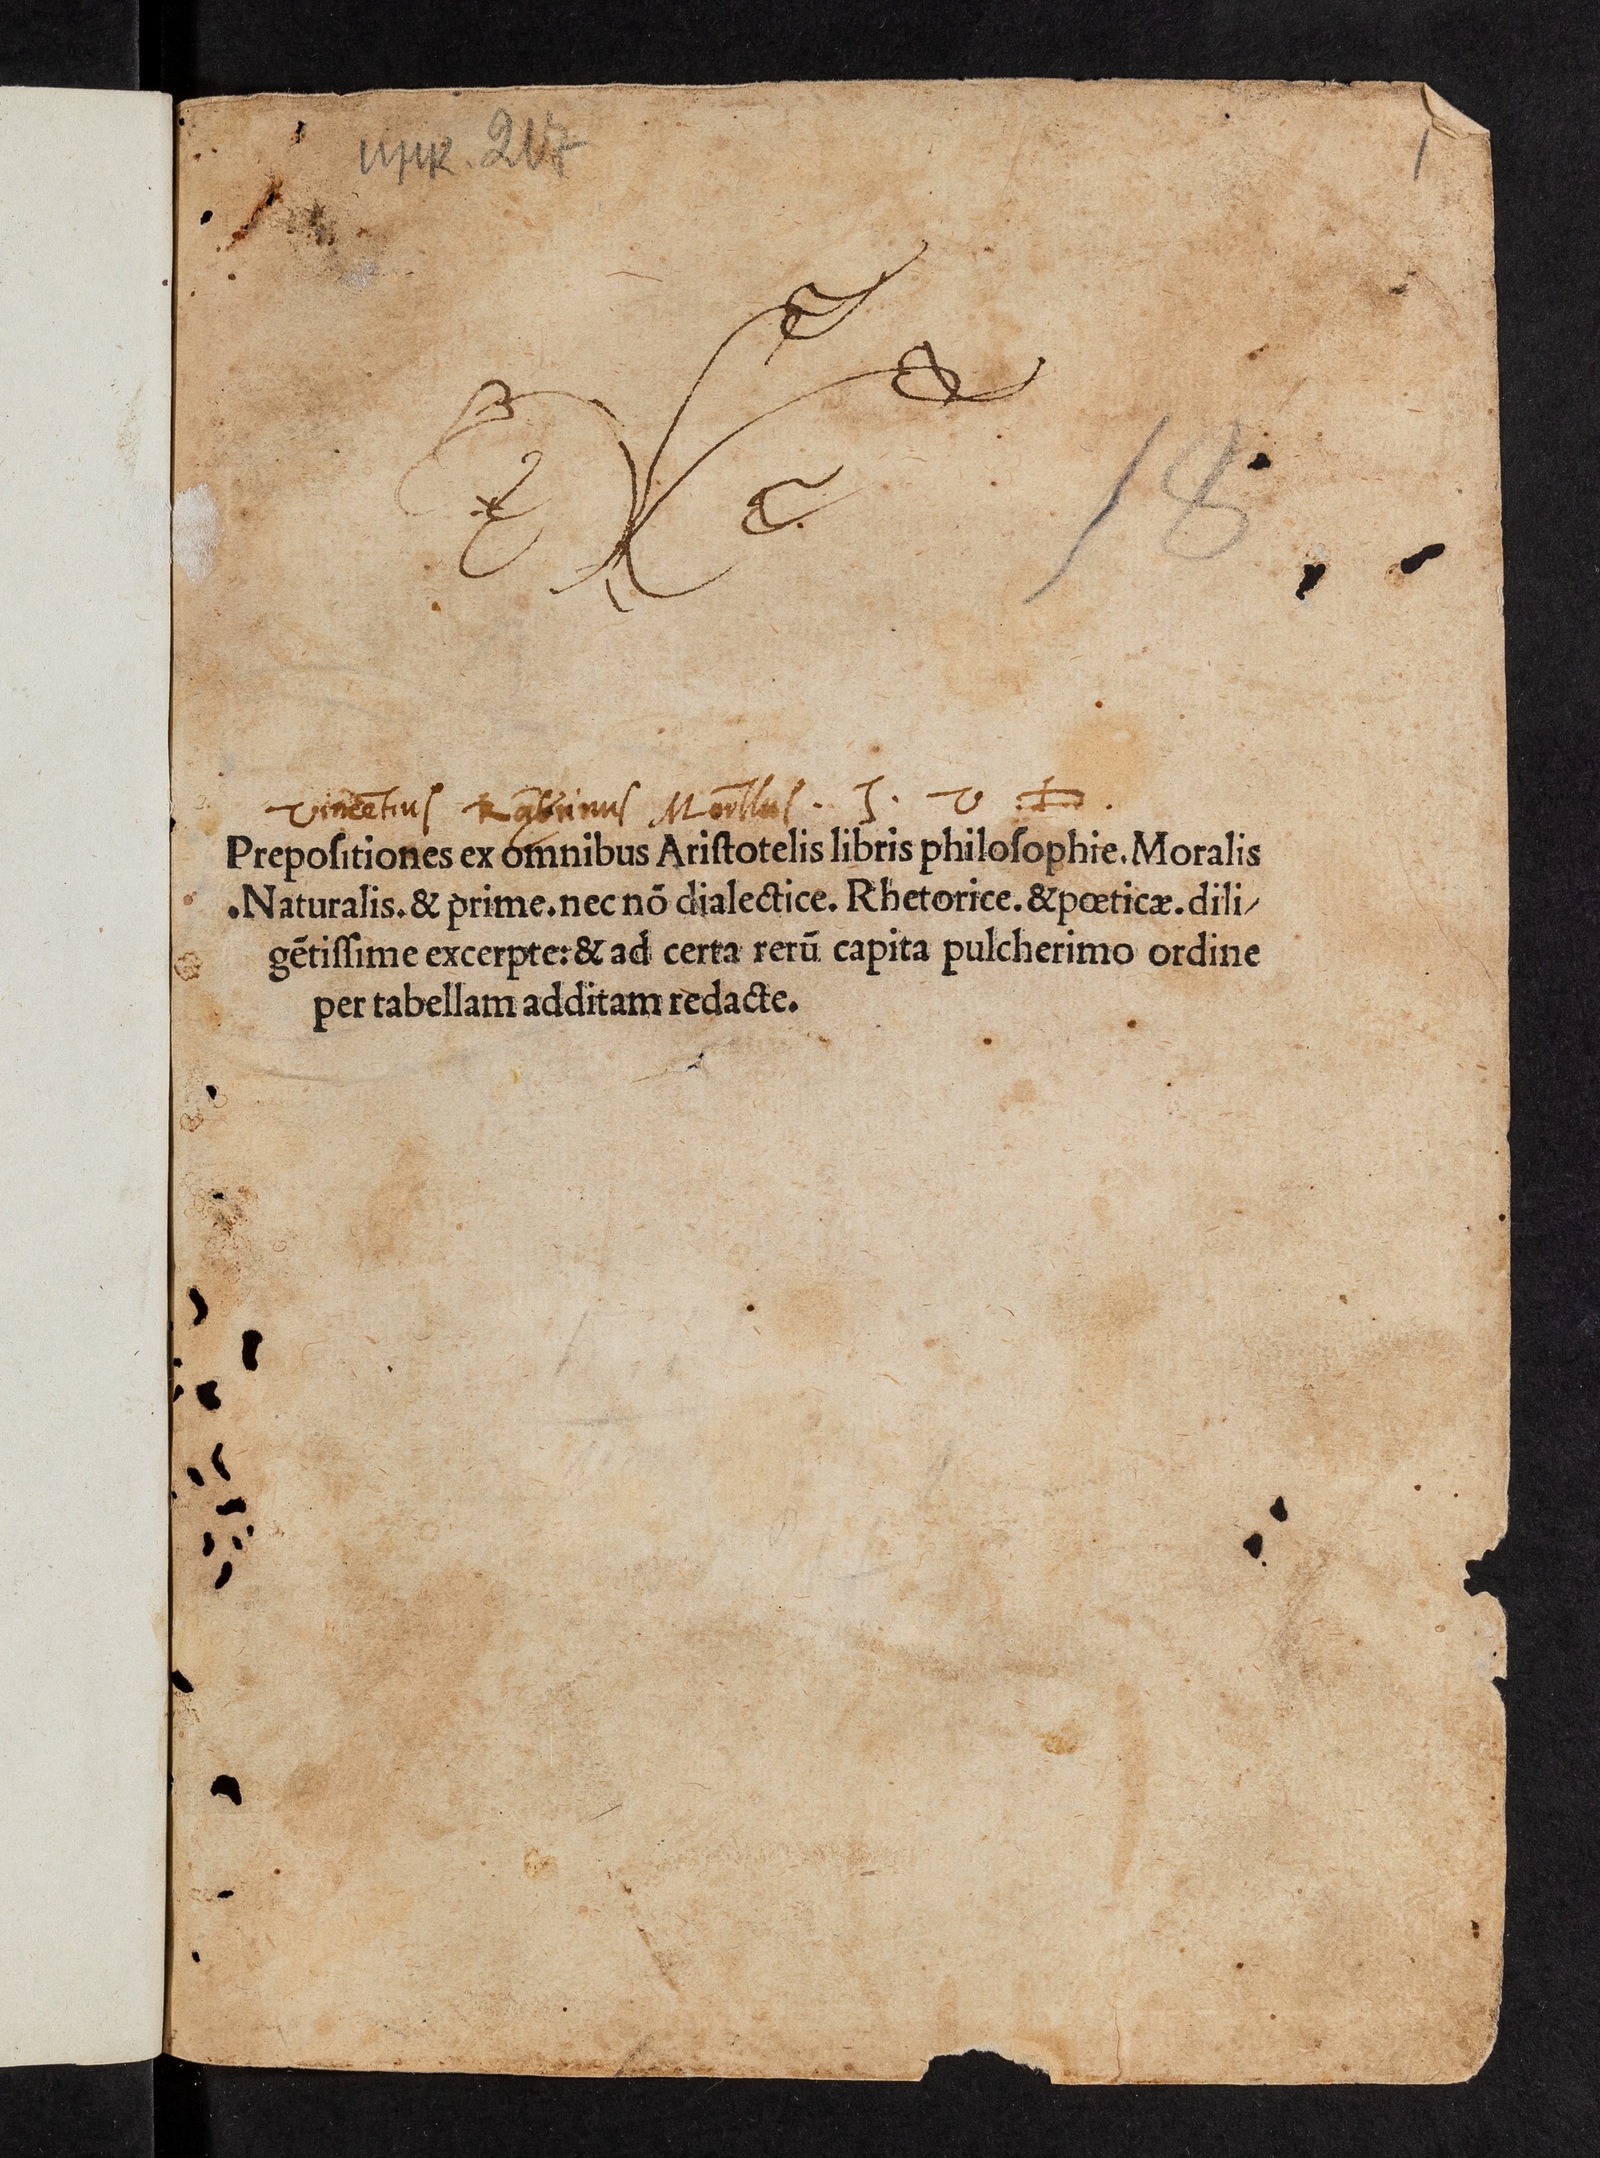 инк. 217
1
18
Vincētius
J. V D.
Prepoſitiones ex omnibus Ariſtotelis libris philoſophie. Moralis
.Naturalis. & prime. nec nō dialectice. Rhetorice. & pœticæ. dili/
gētiſſime excerpte: & ad certa rerū capita pulcherimo ordine
per tabellam additam redacte.